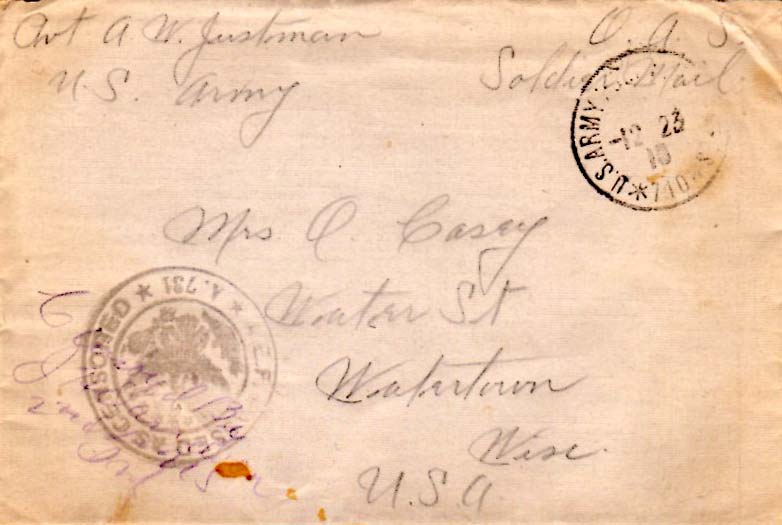 Pvt A W. Justman
U.S. Army
O. A. S.
Soldiers Mail
U.S. ARMY
-12 23
18
*710*S.
Mrs O. Casey
Water St
Watertown
Wisc.
U.S.A.
A.E.F.
* A.731 *
CENSORED
2nd